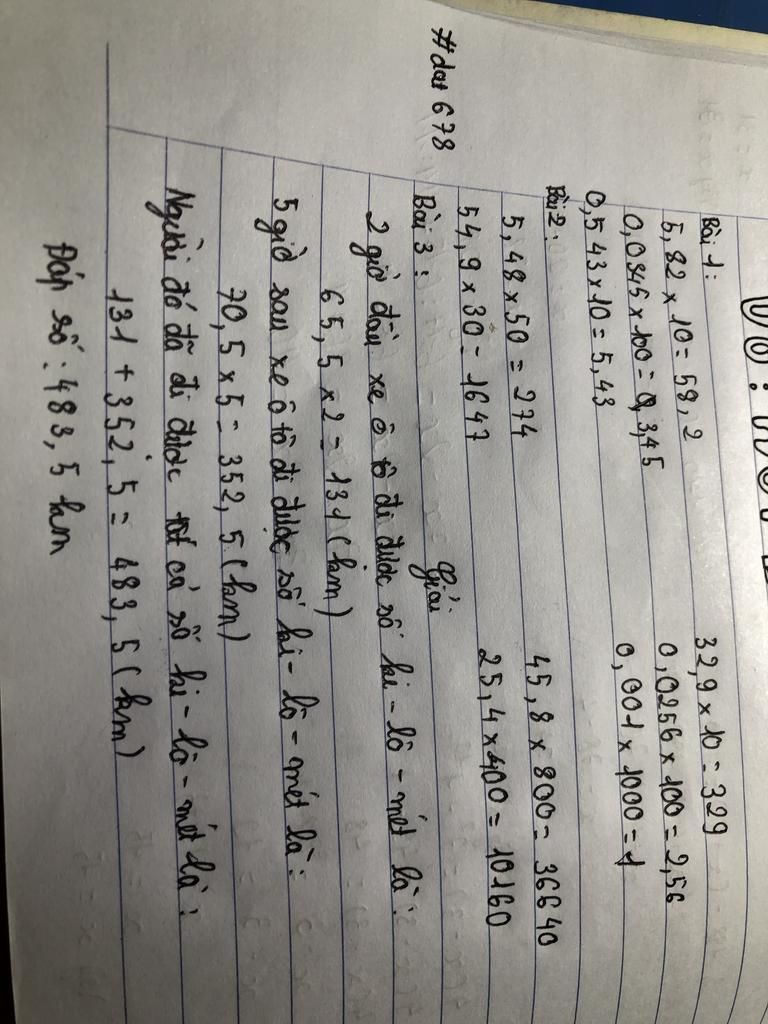 Bài 1:
5,82 x 10 = 58,2 32,9 x 10 = 329
0,0345 x 100 = 3,45 0,0256 x 100 = 2,56
0,543 x 10 = 5,43 0,001 x 1000 = 1
Bài 2:
5,48 x 50 = 274 45,8 x 800 = 36640
54,9 x 30 = 1647 25,4 x 400 = 10160
Bài 3: Giải
2 giờ đầu xe ô tô đi được số ki-lô-mét là:
65,5 x 2 = 131 (km)
5 giờ sau xe ô tô đi được số ki-lô-mét là:
70,5 x 5 = 352,5 (km)
Người đó đã đi được tất cả số ki-lô-mét là:
131 + 352,5 = 483,5 (km)
Đáp số: 483,5 km
#dat678